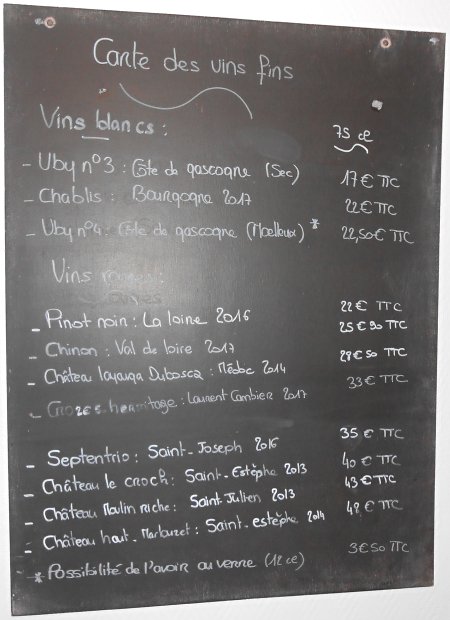 Carte des vins fins
Vins blancs : 75 cl
- Uby n°3 : Côte de gascogne (Sec) 17€ TTC
- Chablis : Bourgogne 2017 22€ TTC
- Uby n°4 : Côte de gascogne (Moelleux) * 22,50€ TTC
Vins rouges :
- Pinot noir : La loire 2016 22€ TTC
- Chinon : Val de loire 2017 25€90 TTC
- Château layauga Duboscq : Médoc 2014 29€50 TTC
- Crozes-hermitage : Laurent Combier 2017 33€ TTC
- Septentrio : Saint-Joseph 2016 35€ TTC
- Château le croch : Saint-Estèphe 2013 40€ TTC
- Château Moulin riche : Saint-Julien 2013 43€ TTC
- Château haut-Marbuzet : Saint-estèphe 2014 48€ TTC
* Possibilité de l'avoir au verre (12cl) 3€50 TTC